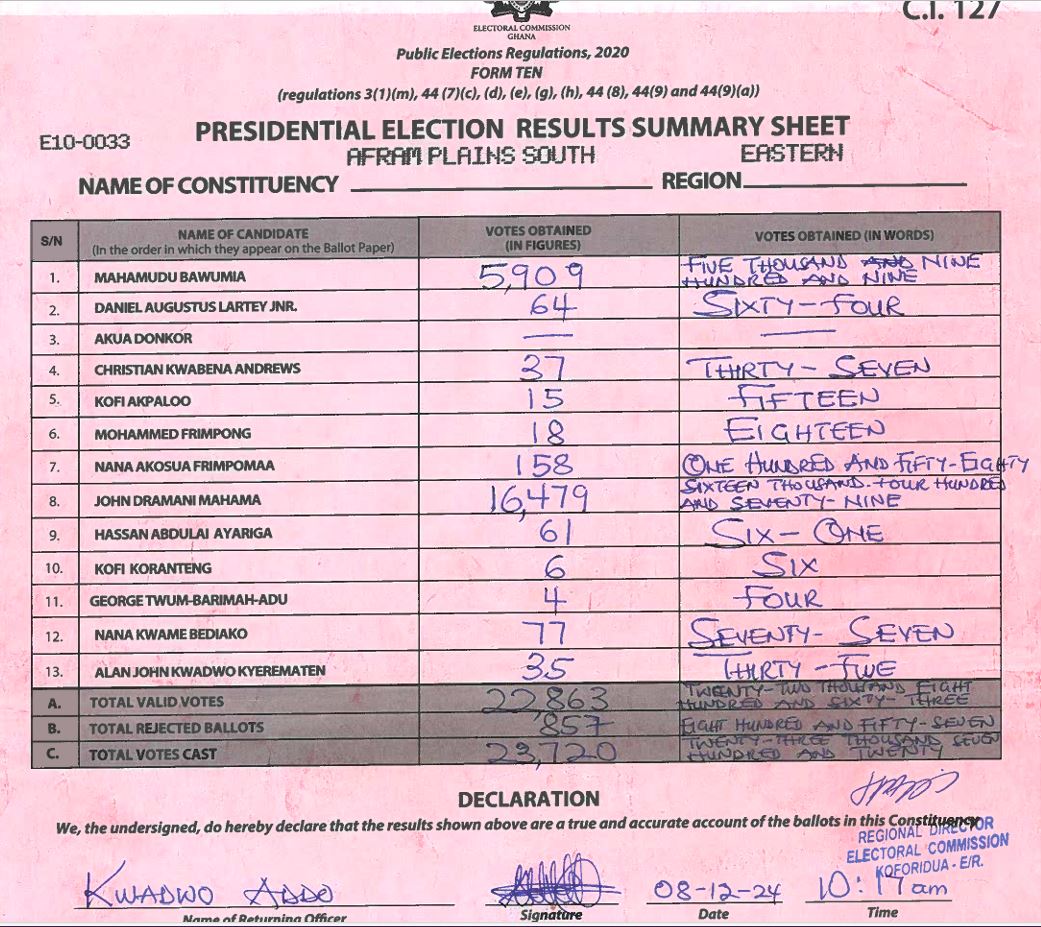 C.I. 127
ELECTORAL COMMISSION
GHANA
Public Elections Regulations, 2020
FORM TEN
(regulations 3(1)(m), 44 (7)(c), (d), (e), (g), (h), 44 (8), 44(9) and 44(9)(a))
E10-0033
PRESIDENTIAL ELECTION RESULTS SUMMARY SHEET
AFRAM PLAINS SOUTH EASTERN
NAME OF CONSTITUENCY REGION
S/N NAME OF CANDIDATE (In the order in which they appear on the Ballot Paper) VOTES OBTAINED (IN FIGURES) VOTES OBTAINED (IN WORDS)
1. MAHAMUDU BAWUMIA 5,909 FIVE THOUSAND AND NINE HUNDRED AND NINE
2. DANIEL AUGUSTUS LARTEY JNR. 64 SIXTY-FOUR
3. AKUA DONKOR — —
4. CHRISTIAN KWABENA ANDREWS 37 THIRTY-SEVEN
5. KOFI AKPALOO 15 FIFTEEN
6. MOHAMMED FRIMPONG 18 EIGHTEEN
7. NANA AKOSUA FRIMPOMAA 158 ONE HUNDRED AND FIFTY-EIGHTY
8. JOHN DRAMANI MAHAMA 16,479 SIXTEEN THOUSAND-FOUR HUNDRED AND SEVENTY-NINE
9. HASSAN ABDULAI AYARIGA 61 SIX-ONE
10. KOFI KORANTENG 6 SIX
11. GEORGE TWUM-BARIMAH-ADU 4 FOUR
12. NANA KWAME BEDIAKO 77 SEVENTY-SEVEN
13. ALAN JOHN KWADWO KYEREMATEN 35 THIRTY-FIVE
A. TOTAL VALID VOTES 22,863 TWENTY-TWO THOUSAND EIGHT HUNDRED AND SIXTY-THREE
B. TOTAL REJECTED BALLOTS 857 EIGHT HUNDRED AND FIFTY-SEVEN
C. TOTAL VOTES CAST 23,720 TWENTY-THREE THOUSAND SEVEN HUNDRED AND TWENTY
DECLARATION
We, the undersigned, do hereby declare that the results shown above are a true and accurate account of the ballots in this Constituency
REGIONAL DIRECTOR
ELECTORAL COMMISSION
KOFORIDUA - E/R.
KWADWO ADDO 08-12-24 10:17am
Name of Returning Officer Signature Date Time